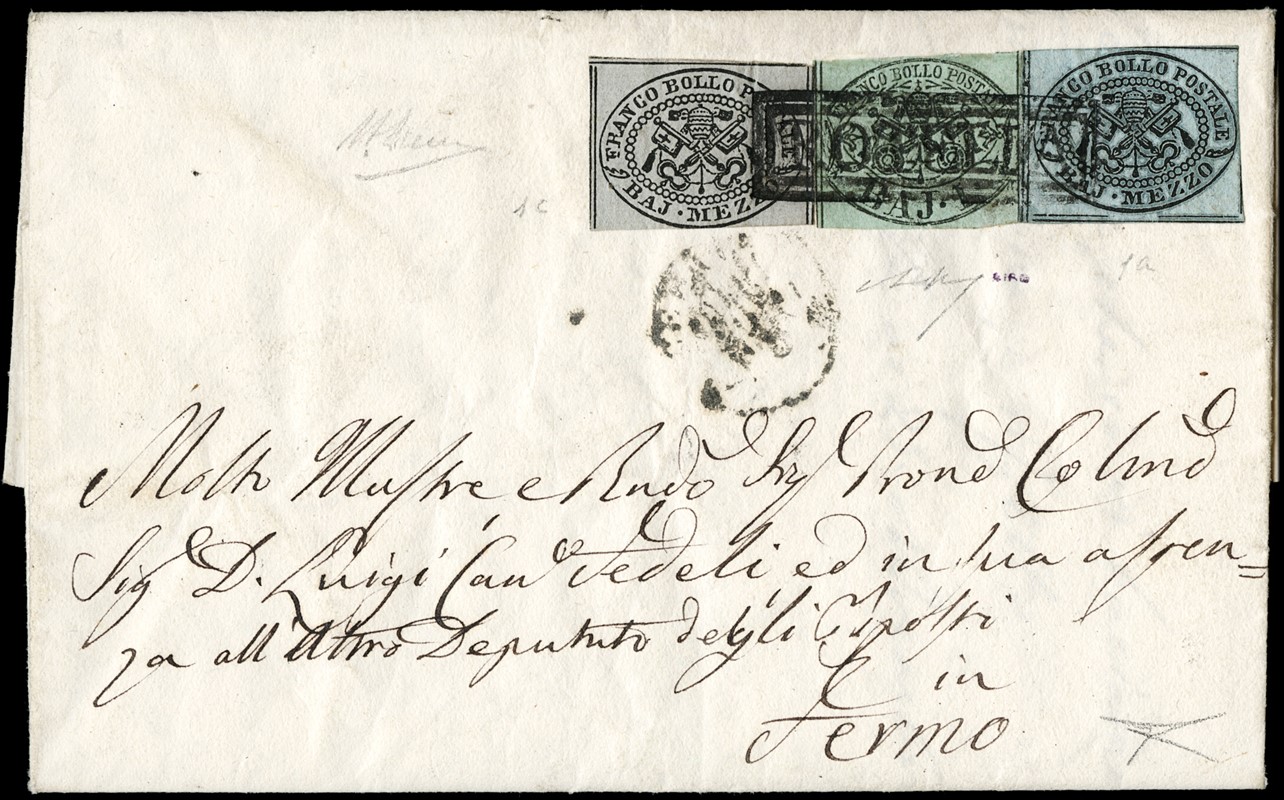 FRANCO BOLLO POSTALE
BAJ. MEZZO
FRANCO BOLLO POSTALE
BAJ. 1
FRANCO BOLLO POSTALE
BAJ. MEZZO
1c
1a
Molto Illustre e Rndo Sig Prone Colmo
Sig D. Luigi Can Fedeli ed in sua assen=
za all'Altro Deputato degli Esposti
in
Fermo